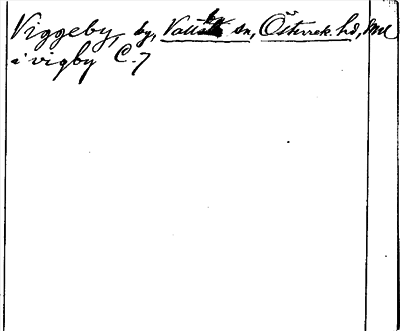 Viggeby, by, Vallb sn, Österrek. hd,
i vigby C. 7